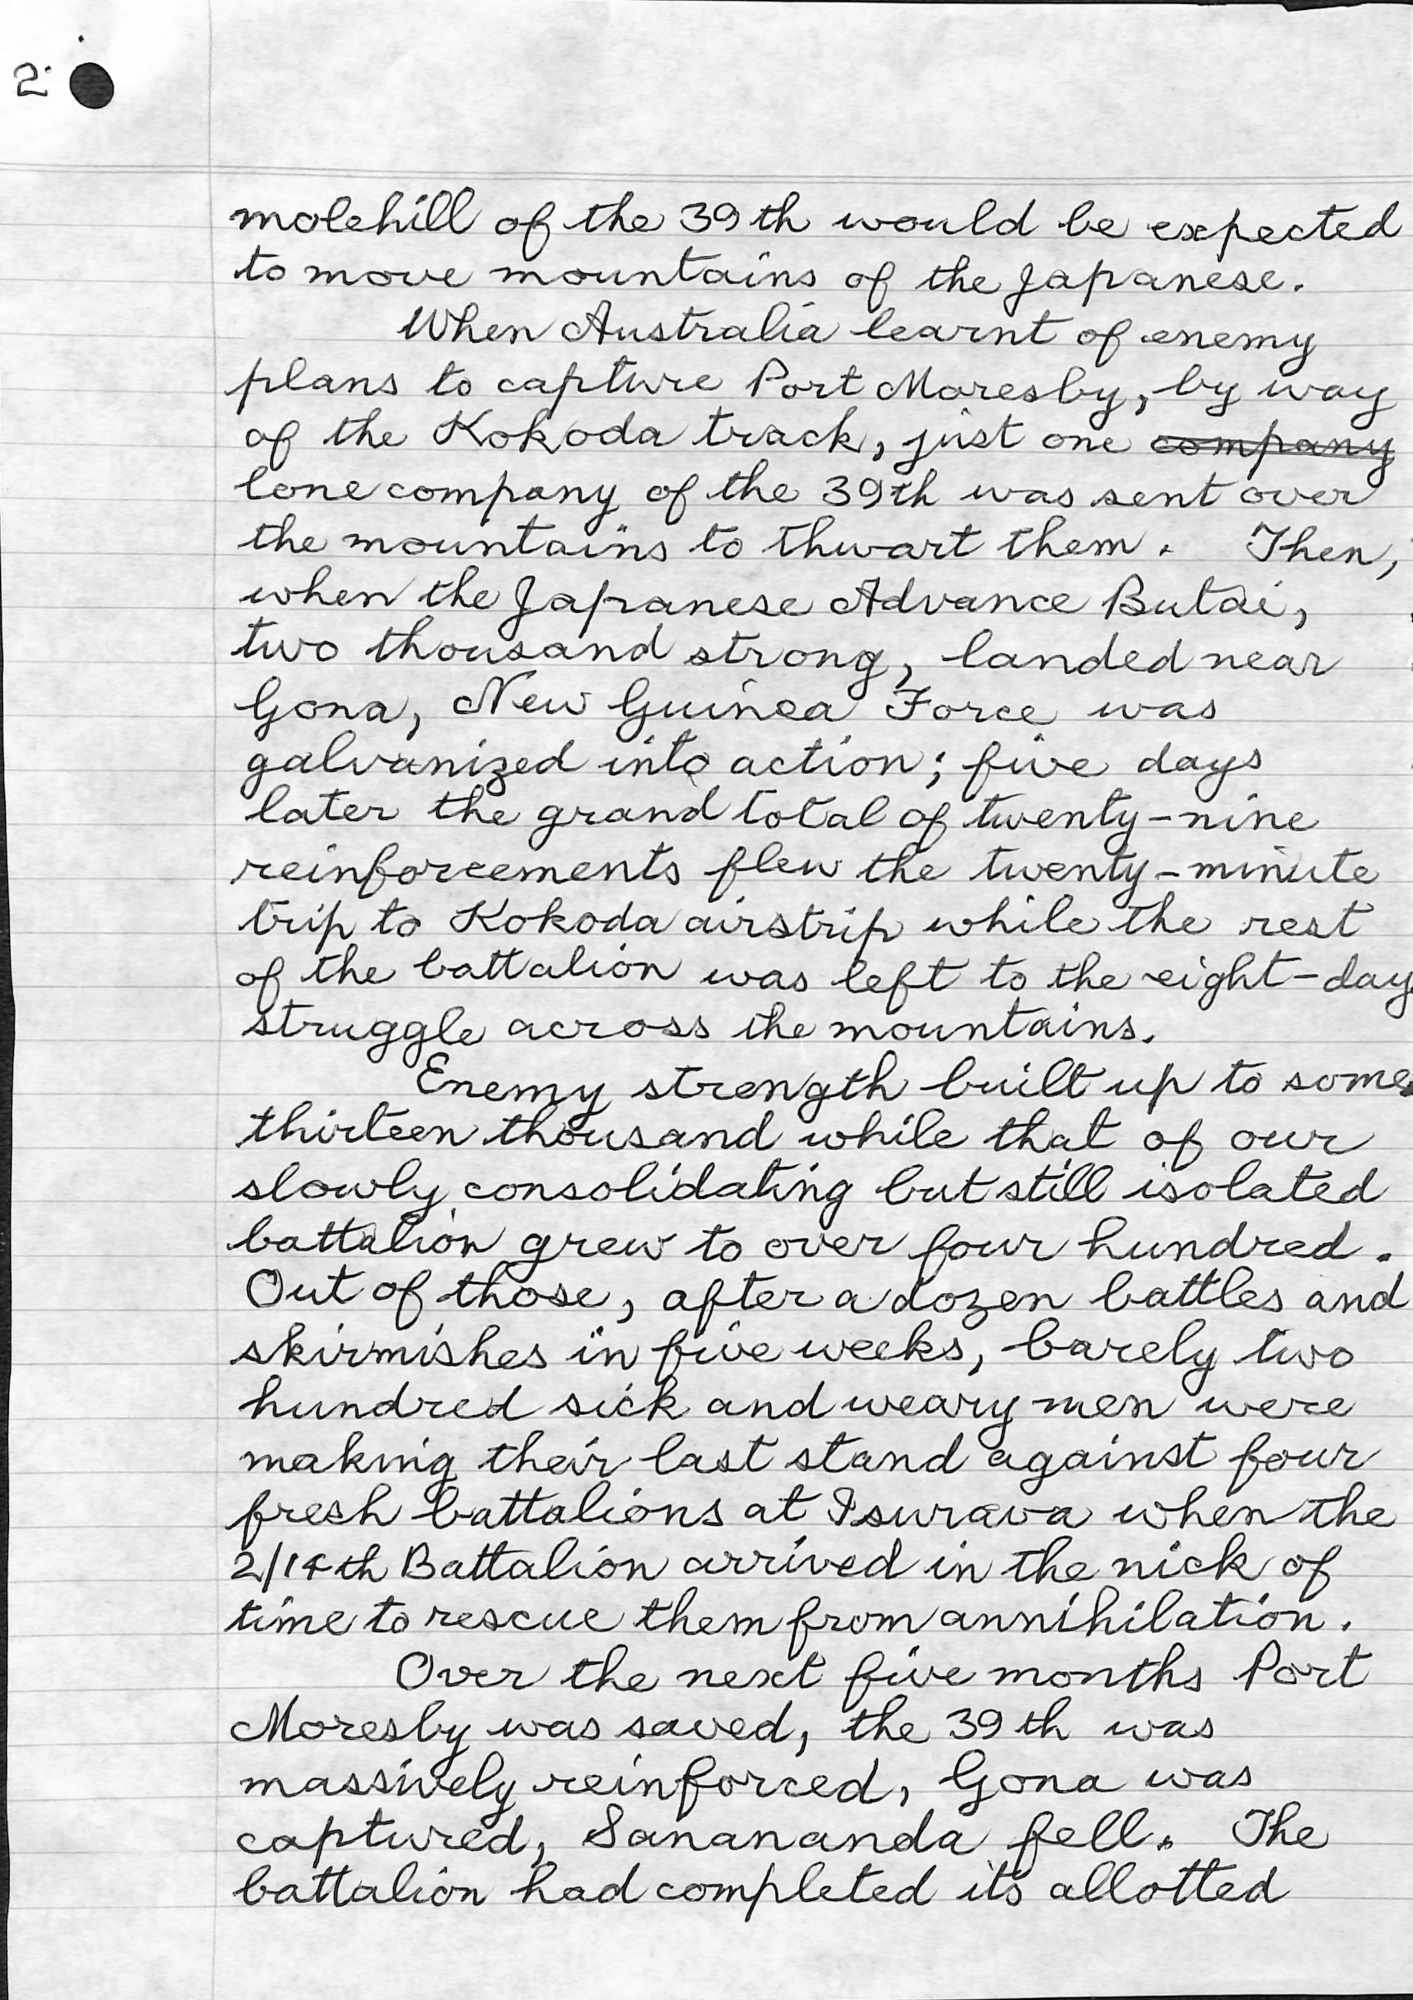 2.
molehill of the 39th would be expected
to move mountains of the Japanese.
When Australia learnt of enemy
plans to capture Port Moresby, by way
of the Kokoda track, just one ~~company~~
lone company of the 39th was sent over
the mountains to thwart them. Then,
when the Japanese Advance Butai,
two thousand strong, landed near
Gona, New Guinea Force was
galvanized into action; five days
later the grand total of twenty-nine
reinforcements flew the twenty-minute
trip to Kokoda airstrip while the rest
of the battalion was left to the eight-day
struggle across the mountains.
Enemy strength built up to some
thirteen thousand while that of our
slowly consolidating but still isolated
battalion grew to over four hundred.
Out of those, after a dozen battles and
skirmishes in five weeks, barely two
hundred sick and weary men were
making their last stand against four
fresh battalions at Isurava when the
2/14th Battalion arrived in the nick of
time to rescue them from annihilation.
Over the next five months Port
Moresby was saved, the 39th was
massively reinforced, Gona was
captured, Sanananda fell. The
battalion had completed its allotted